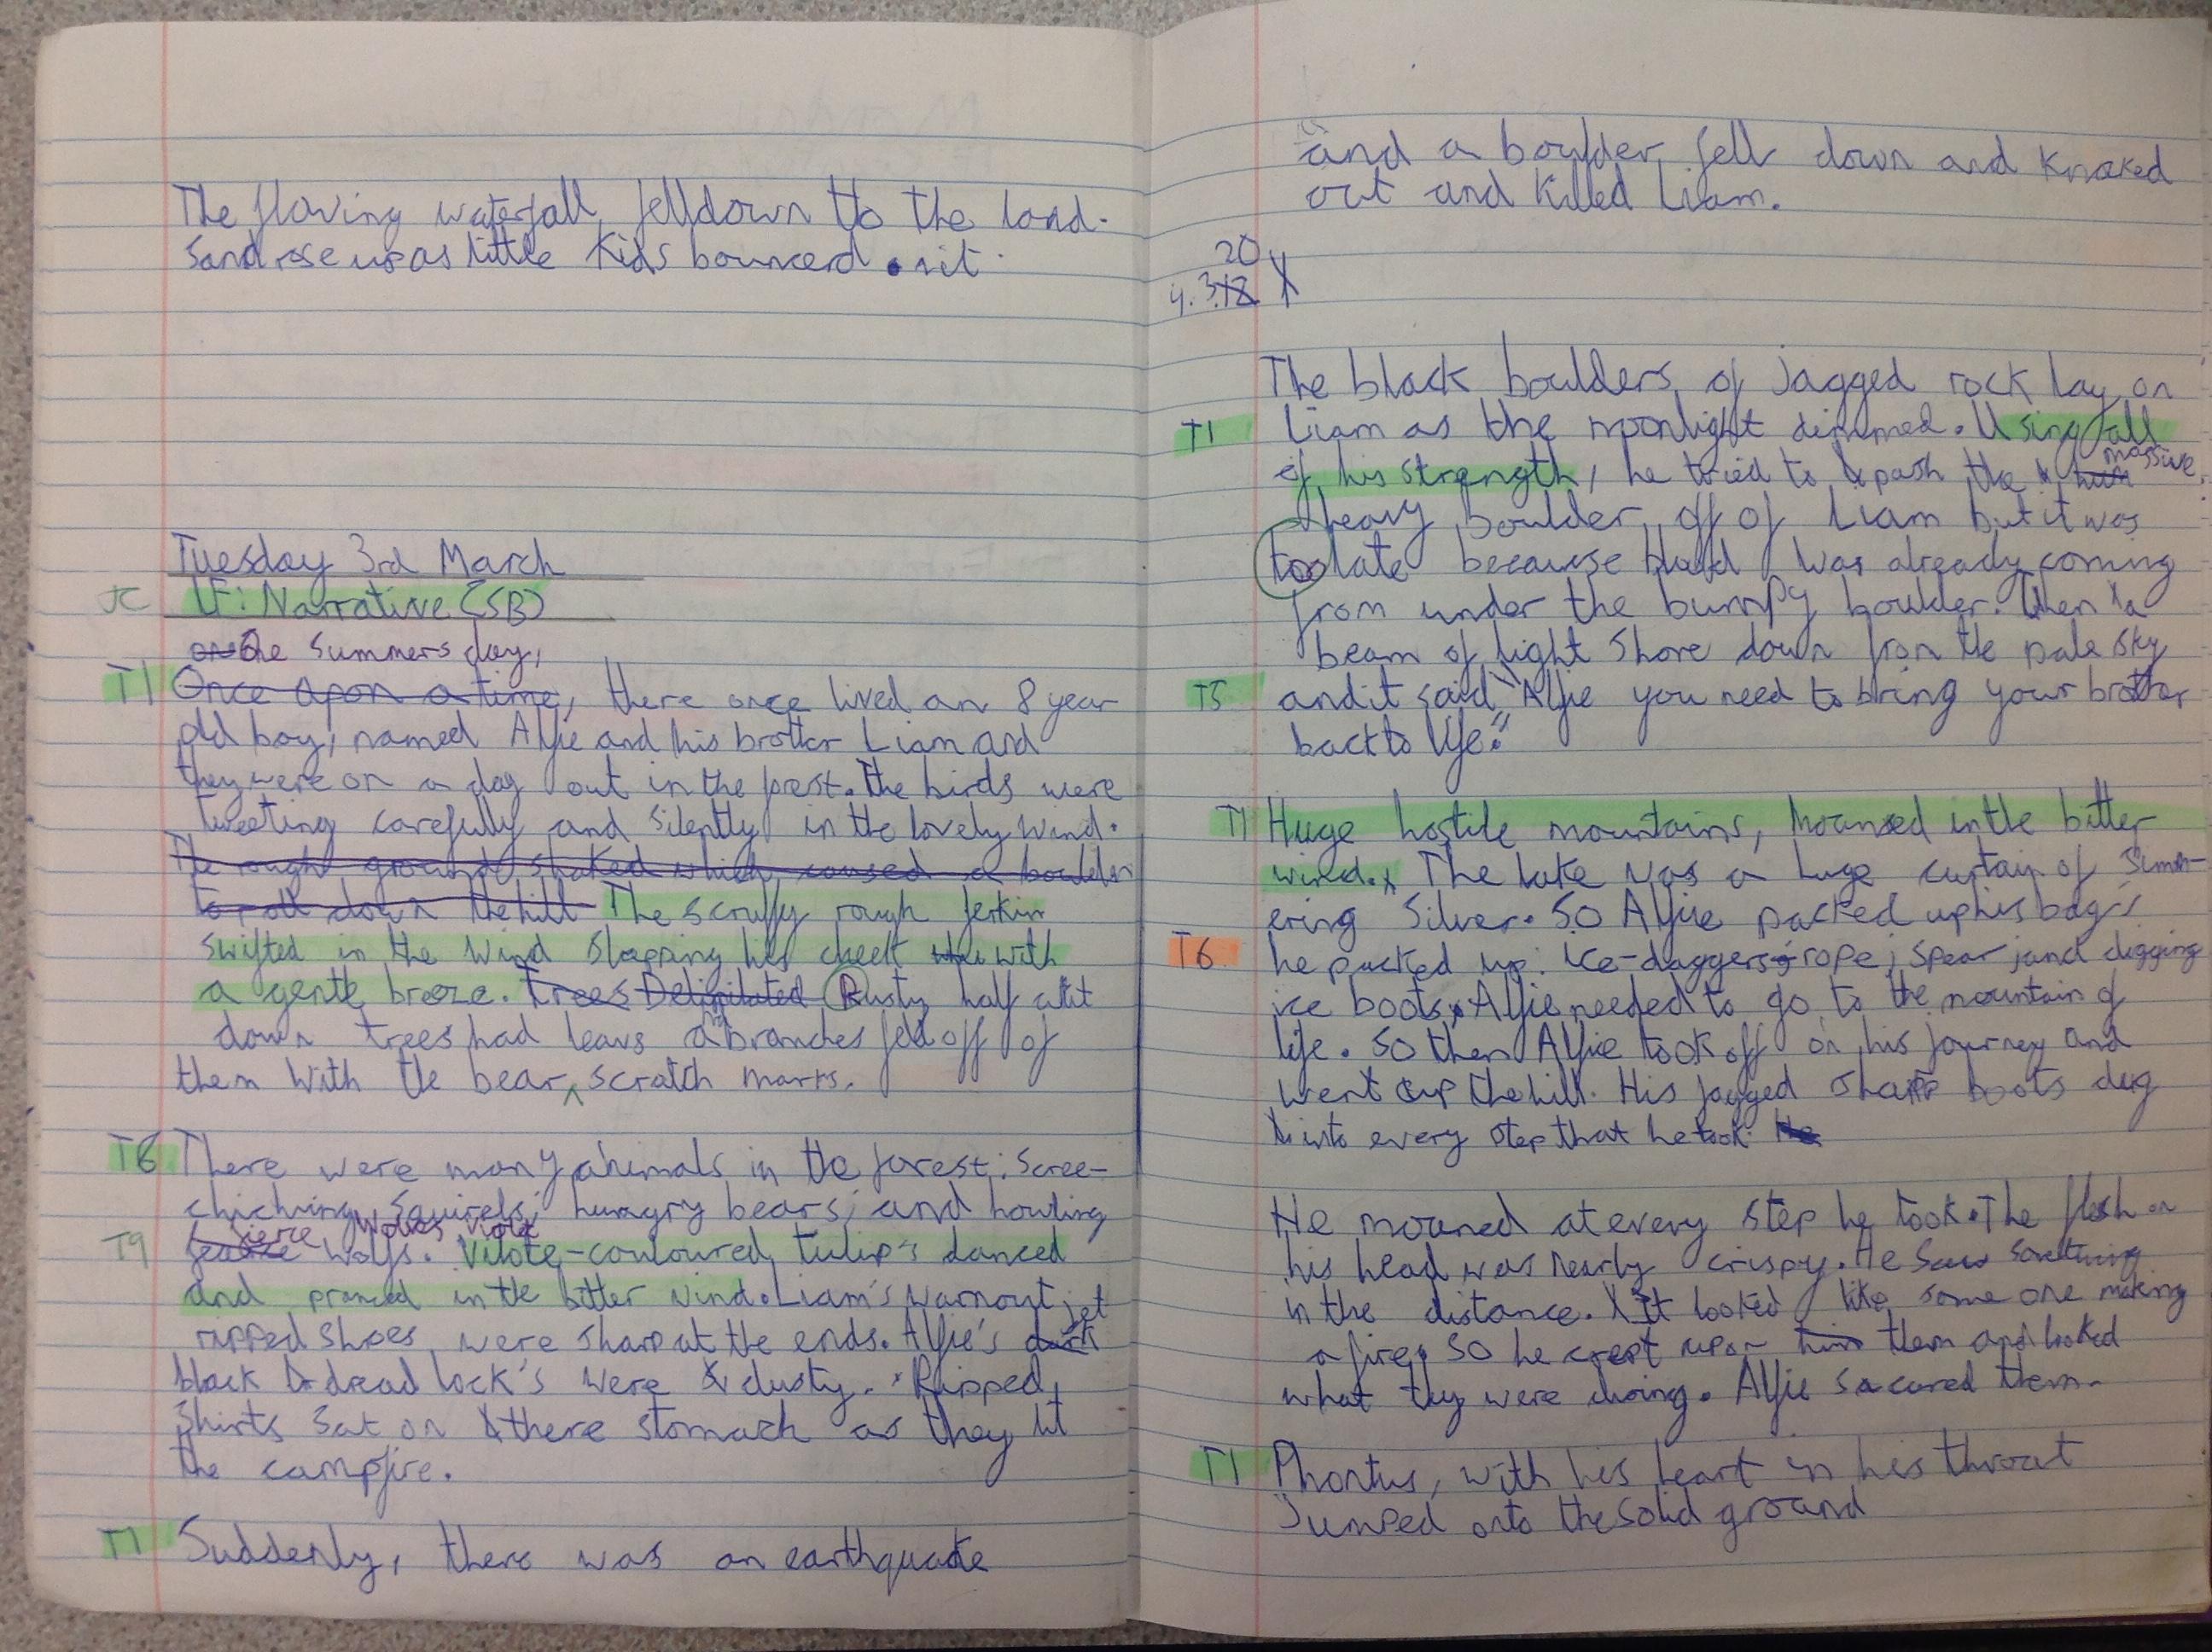 The flowing waterfall felldown to the land.
Sand rose up as little kids bouncerd it.
Tuesday 3rd March
JC LF: Narrative (SB)
One Summers day,
T1 Once upon a time, there once lived an 8 year
old boy, named Alfie and his brother Liam and
they were on a day out in the forest. The birds were
tweeting carefully and silently in the lovely wind.
The rough ground shaked which caused a boulder
to roll down the hill The scruffy rough jerkin
swifted in the wind slapping his cheek with
a gentle breeze. Trees Delipitated Rusty half cut
down trees had leavs branches fell off of
them with the bear scratch marks.
T6 There were many animals in the forest: Scree-
chiching squirels; hungry bears; and howling
fierce wolves violet
T9 wolfs. Vilote-couloured tulip's danced
and pranced in the bitter wind. Liam's wornout jet
ripped shoes were sharp at the ends. Alfie's dark
black dread lock's were dusty. Ripped
shirts sat on there stomach as they lit
the campfire.
T1 Suddenly, there was an earthquake
and a boulder fell down and knoked
out and killed Liam.
20
The black boulders of jagged rock lay on
T1 Liam as the moonlight dimmed. Using all
of his strength, he tried to push the massive,
heavy boulder off of Liam but it was
too late because blood was already coming
from under the bumpy boulder. Then a
beam of light shone down from the pale sky
T5 and it said "Alfie you need to bring your brother
back to life."
T1 Huge hostile mountains, moaned in the bitter
wind. The lake was a huge curtain of simm-
ering silver. So Alfie packed up his bag's
T6 he packed up: ice-daggers; rope; spear; and digging
ice boots. Alfie needed to go to the mountain of
life. So then Alfie took off on his journey and
went up the hill. His jagged sharp boots dug
into every step that he took. He
He moaned at every step he took. The flesh on
his head was nearly crispy. He saw something
in the distance. It looked like some one making
a fire. So he crept upon him them and looked
what they were doing. Alfie sacured them.
T1 Phontus, with his heart in his throat
Jumped onto the solid ground